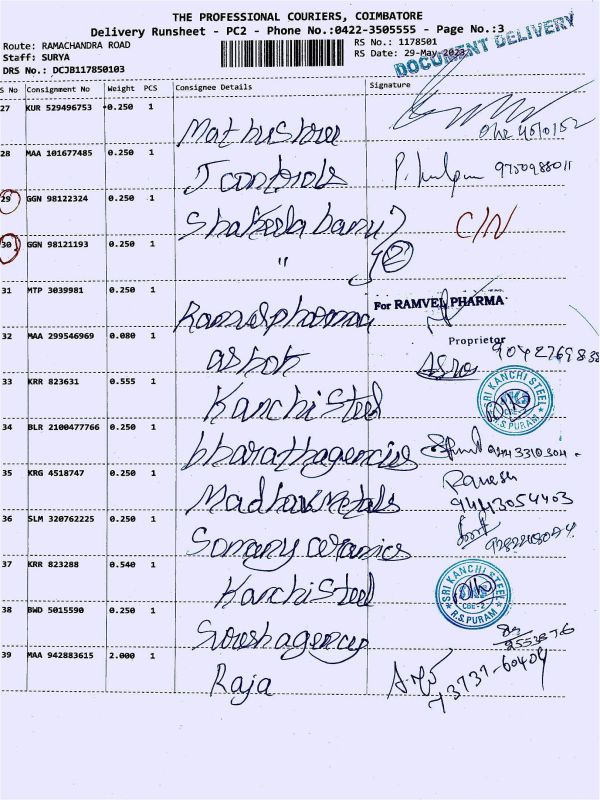 THE PROFESSIONAL COURIERS, COIMBATORE
Delivery Runsheet - PC2 - Phone No.:0422-3505555 - Page No.:3
Route: RAMACHANDRA ROAD RS No.: 1178501
Staff: SURYA RS Date: 29-May-2023
DRS No.: DCJB117850103 DOCUMENT DELIVERY
S No Consignment No Weight PCS Consignee Details Signature
27 KUR 529496753 0.250 1 Mathushree
28 MAA 101677485 0.250 1 J controls P. 9750988011
29 GGN 98122324 0.250 1 Shakeela banu C/N
30 GGN 98121193 0.250 1 " 2
31 MTP 3039981 0.250 1 Ramvelpharma For RAMVEL PHARMA
Proprietor
32 MAA 299546969 0.080 1 ashok 9042769838
33 KRR 823631 0.555 1 Kanchi Steel SRI KANCHI STEEL CBE-2 R.S PURAM
34 BLR 2100477766 0.250 1 bharathagencies 9443310304
35 KRG 4518747 0.250 1 Madhavmetals Ramesh
9443054403
36 SLM 320762225 0.250 1 Somany ceramics
37 KRR 823288 0.540 1 Kanchi Steel SRI KANCHI STEEL CBE-2 R.S PURAM
38 BWD 5015590 0.250 1 Sureshagency
39 MAA 942883615 2.000 1 Raja 73737-60404